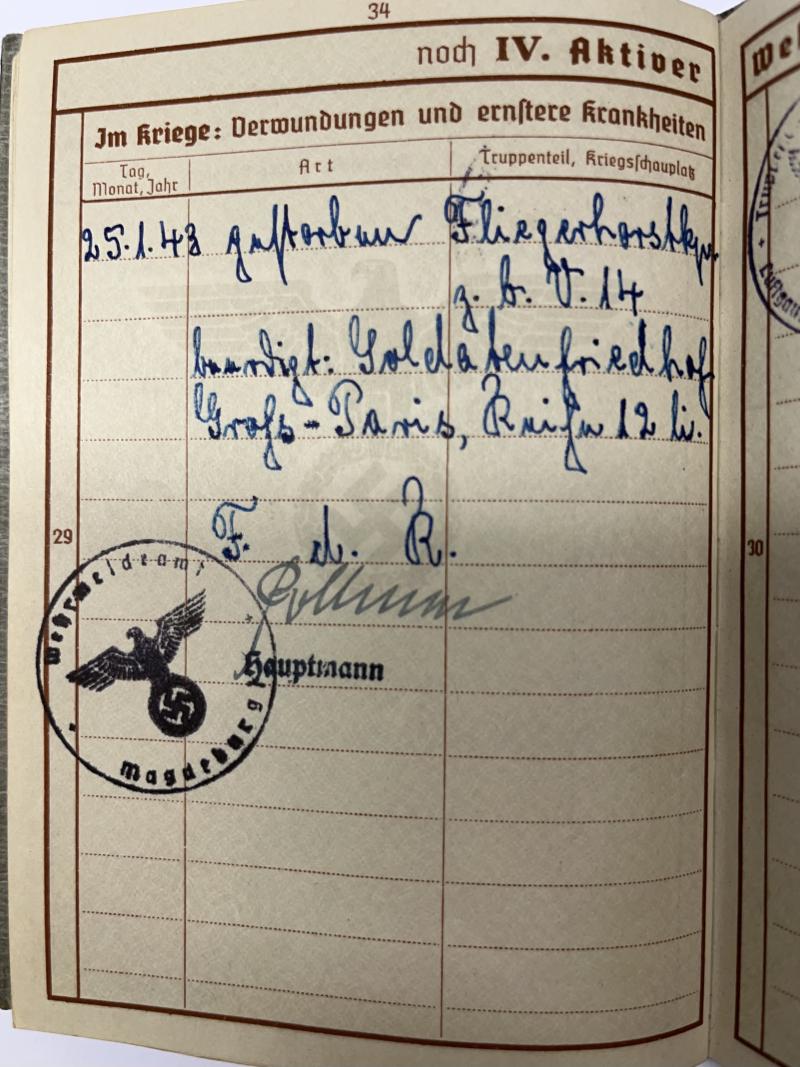 34
noch IV. Aktiver
Im Kriege: Verwundungen und ernstere Krankheiten
Tag, Monat, Jahr
Art
Truppenteil, Kriegsschauplatz
25.1.43 gestorben Fliegerhorstkp.
z. b. V. 14
beerdigt: Soldatenfriedhof
Groß-Paris, Reihe 12 li.
29
F. d. R.
Hauptmann
Wehrmeldeamt
Magdeburg
30
We